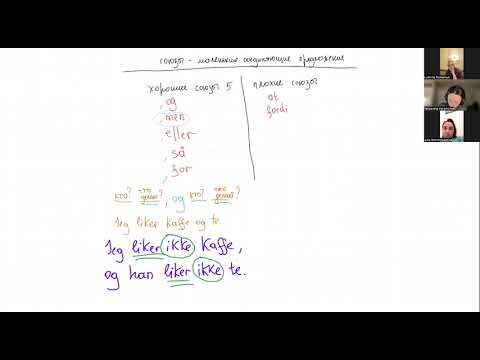 союзы - маленькие соединяющие предложение
хорошие союзы 5
плохие союзы
, og
at
, men
fordi
, eller
, så
, for
кто? что делает? , og кто? что делает?
Jeg liker kaffe og te.
Jeg liker ikke kaffe,
og han liker ikke te.